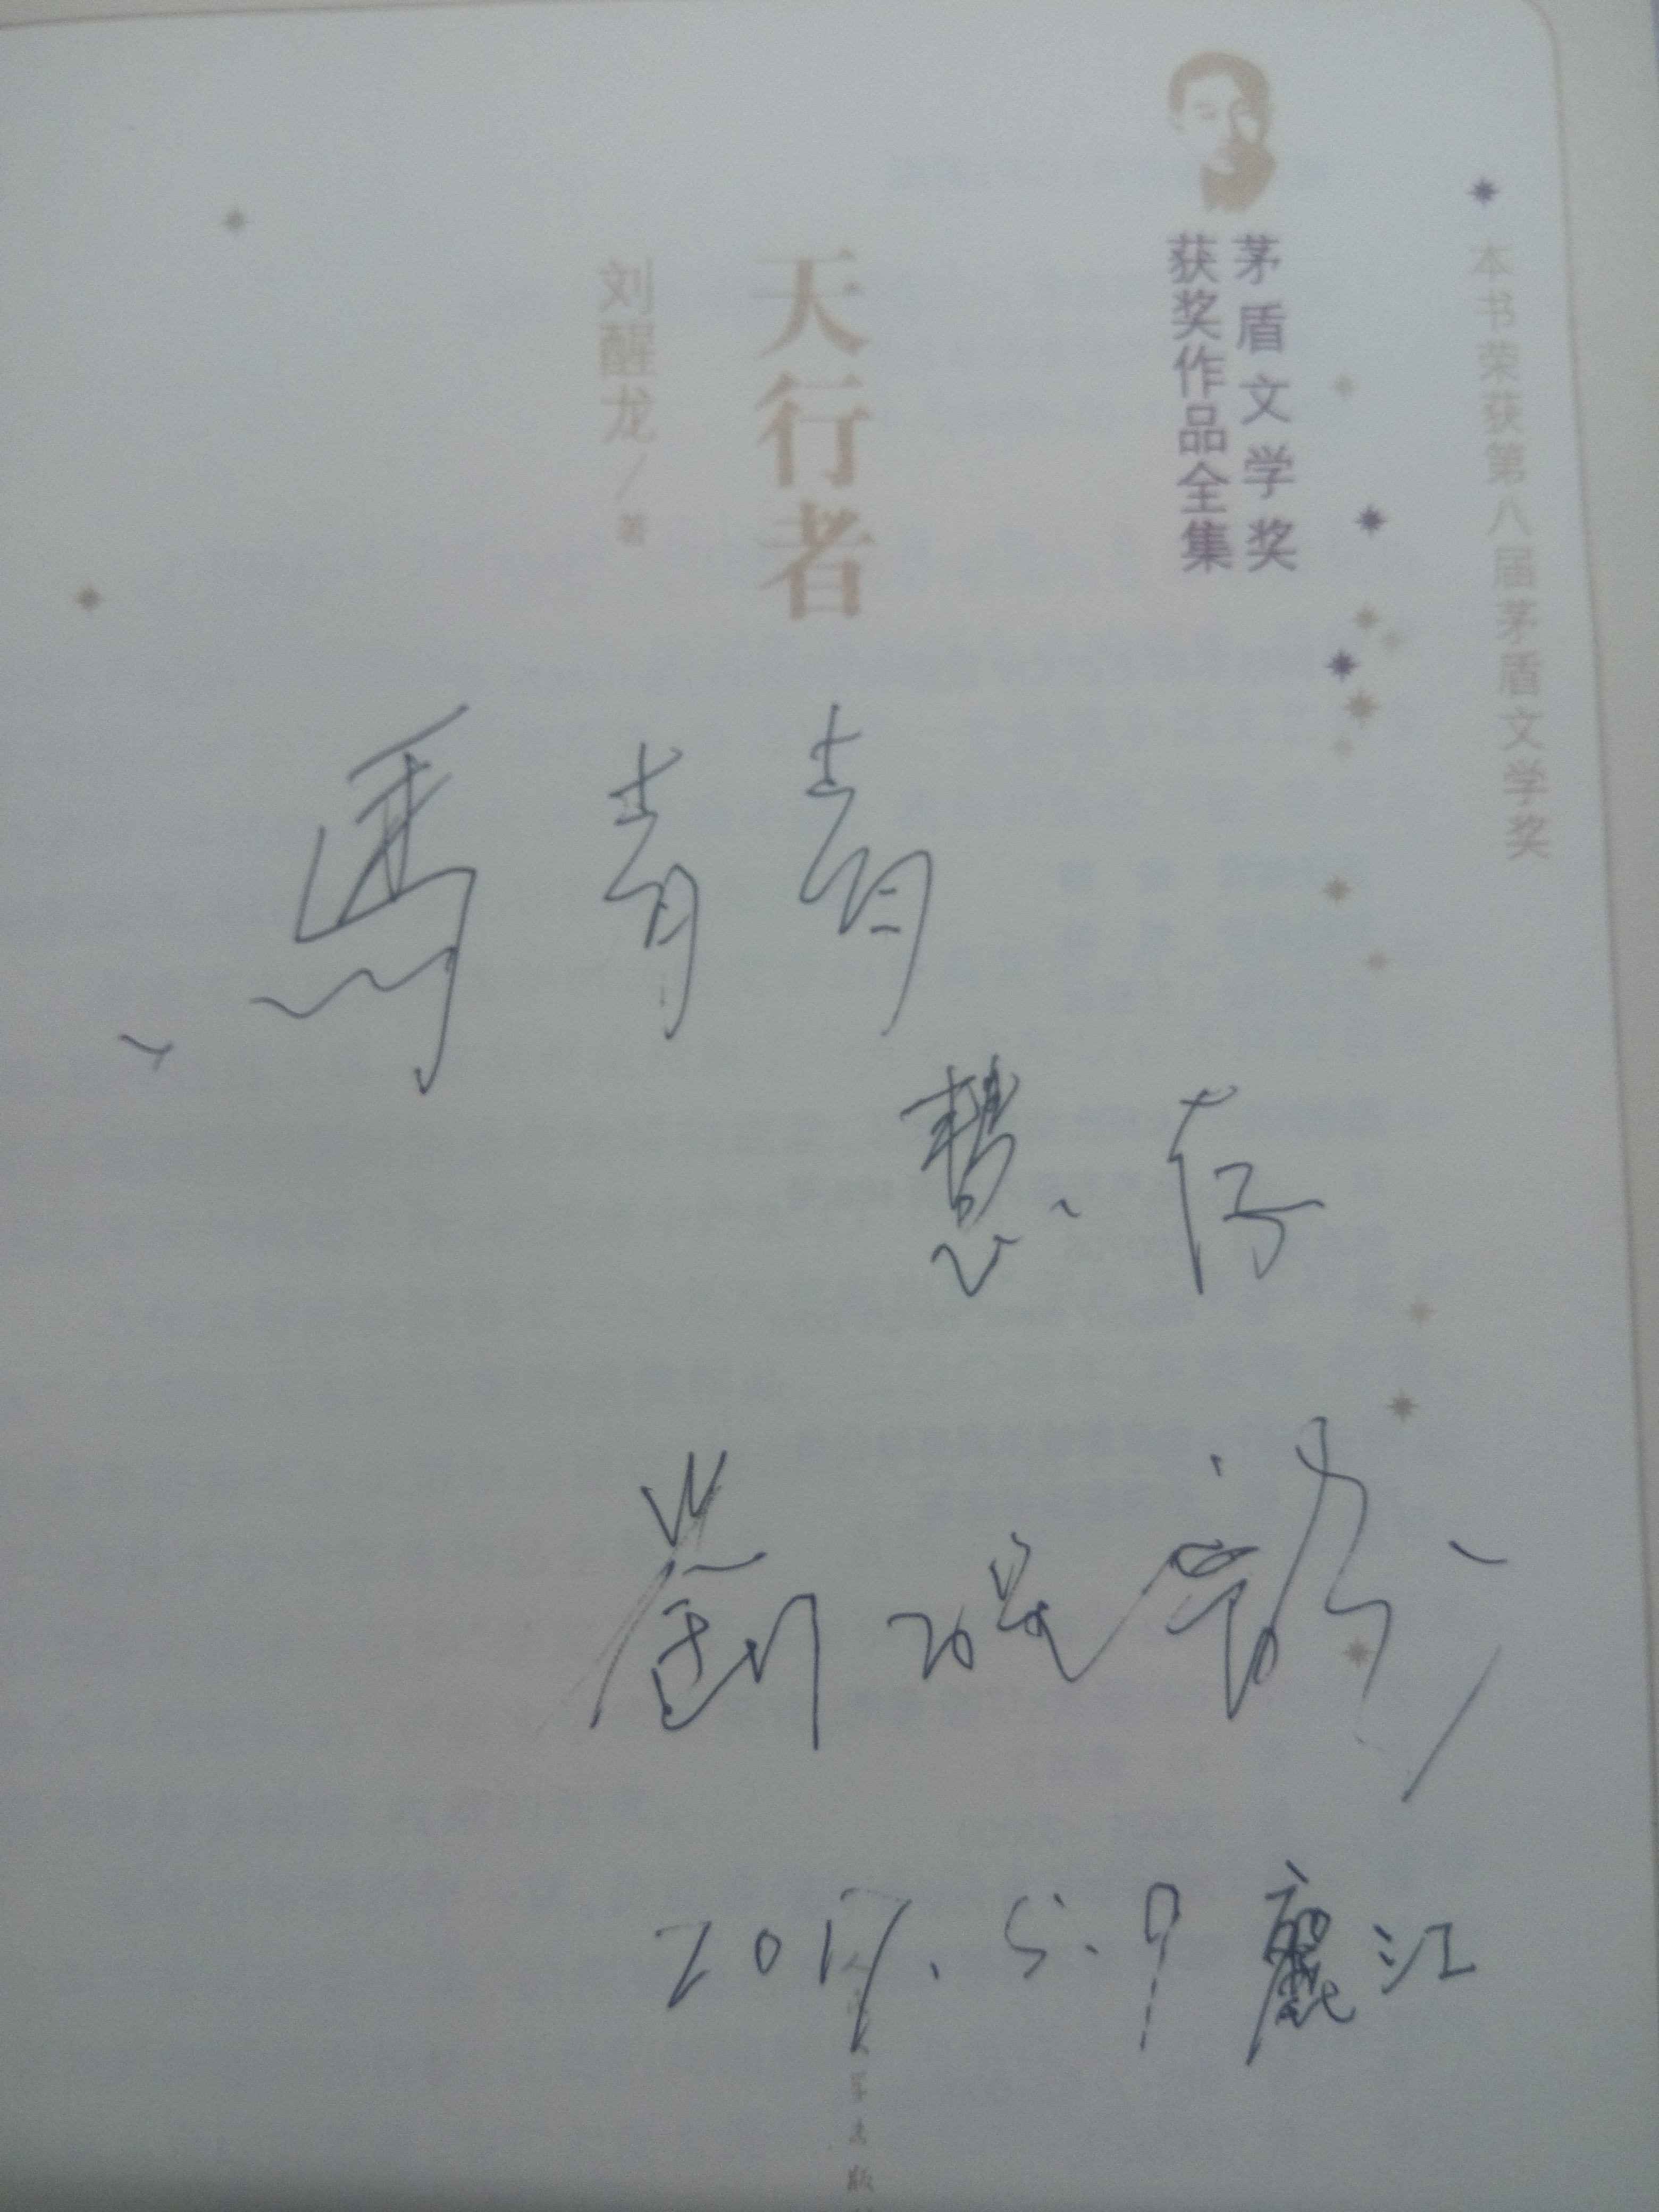 本书荣获第八届茅盾文学奖
茅盾文学奖
获奖作品全集
天行者
刘醒龙/著
馬青青
慧存
劉醒龍
2017.5.9 麗江
学出版